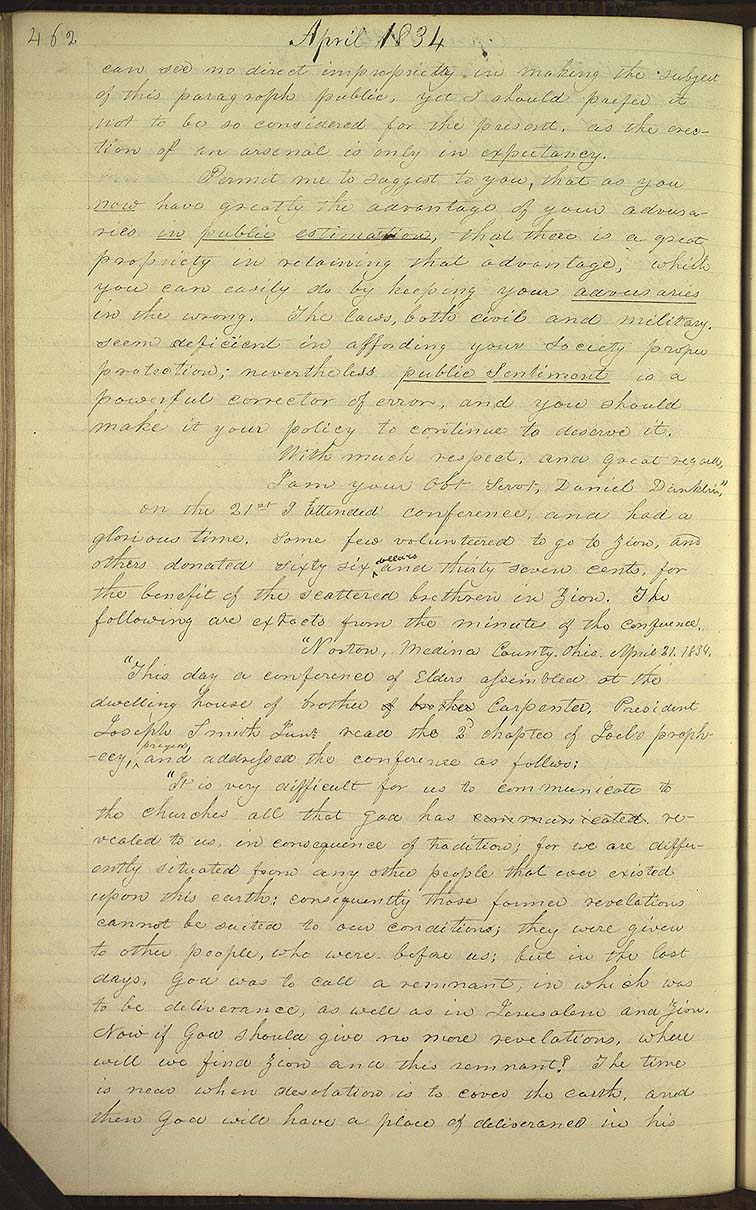 462 April 1834
can see no direct impropriety in making the subject
of this paragraph public, yet I should prefer it
not to be so considered for the present, as the erec-
tion of an arsenal is only in expectancy.
Permit me to suggest to you, that as you
now have greatly the advantage of your adversa-
ries in public estimation, that there is a great
propriety in retaining that advantage, which
you can easily do by keeping your adversaries
in the wrong. The laws, both civil and military,
seem deficient in affording your society proper
protection; nevertheless public sentiment is a
powerful corrector of error, and you should
make it your policy to continue to deserve it.
With much respect, and great regard,
I am your Obt Servt, Daniel Dunklin."
on the 21st I attended conference, and had a
glorious time. some few volunteered to go to Zion, and
others donated sixty six dollars and thirty seven cents, for
the benefit of the scattered brethren in Zion. The
following are extracts from the minutes of the conference.
"Norton, Medina County. Ohio. April 21. 1834.
"This day a conference of Elders assembled at the
dwelling house of brother of brother Carpenter. President
Joseph Smith Junr read the 2d chapter of Joel's proph-
-ecy, prayed, and addressed the conference as follows:
"It is very difficult for us to communicate to
the churches all that God has communicated re-
vealed to us, in consequence of tradition; for we are differ-
ently situated from any other people that ever existed
upon this earth; consequently those former revelations
cannot be suited to our conditions; they were given
to other people, who were before us; but in the last
days, God was to call a remnant, in which was
to be deliverance, as well as in Jerusalem and Zion.
Now if God should give no more revelations, where
will we find Zion and this remnant? The time
is near when desolation is to cover the earth, and
then God will have a place of deliverance in his